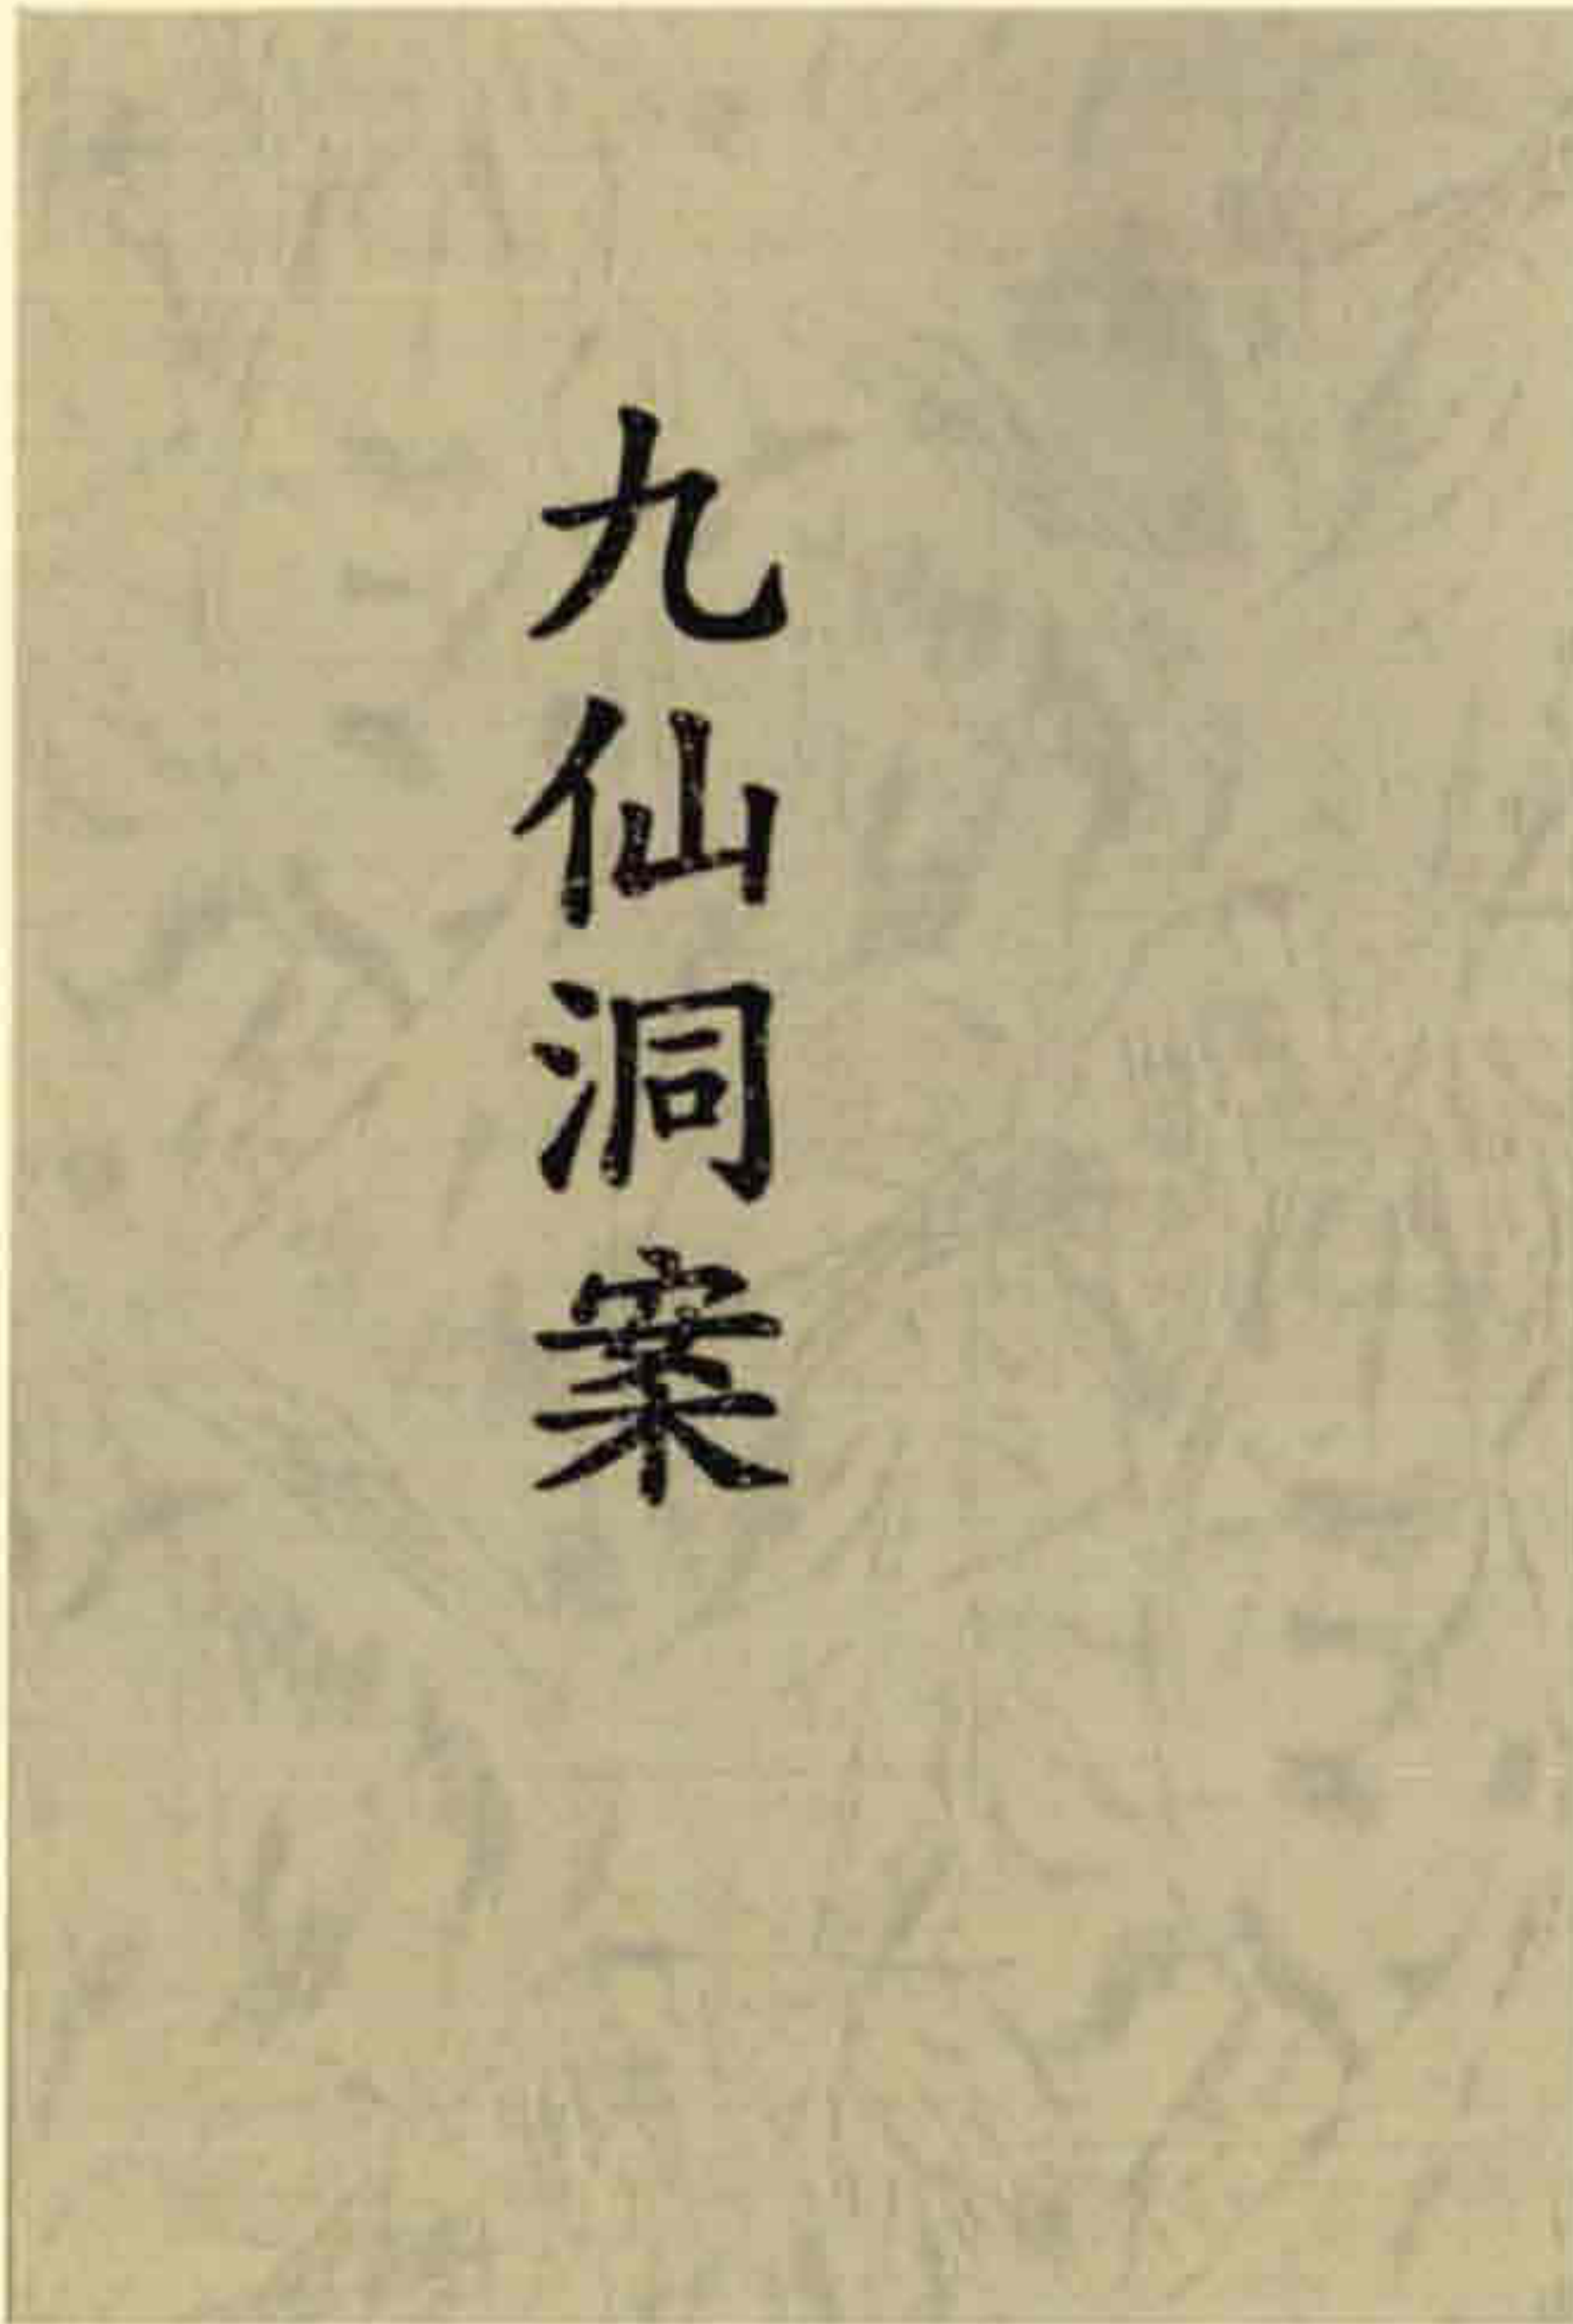 九仙洞案